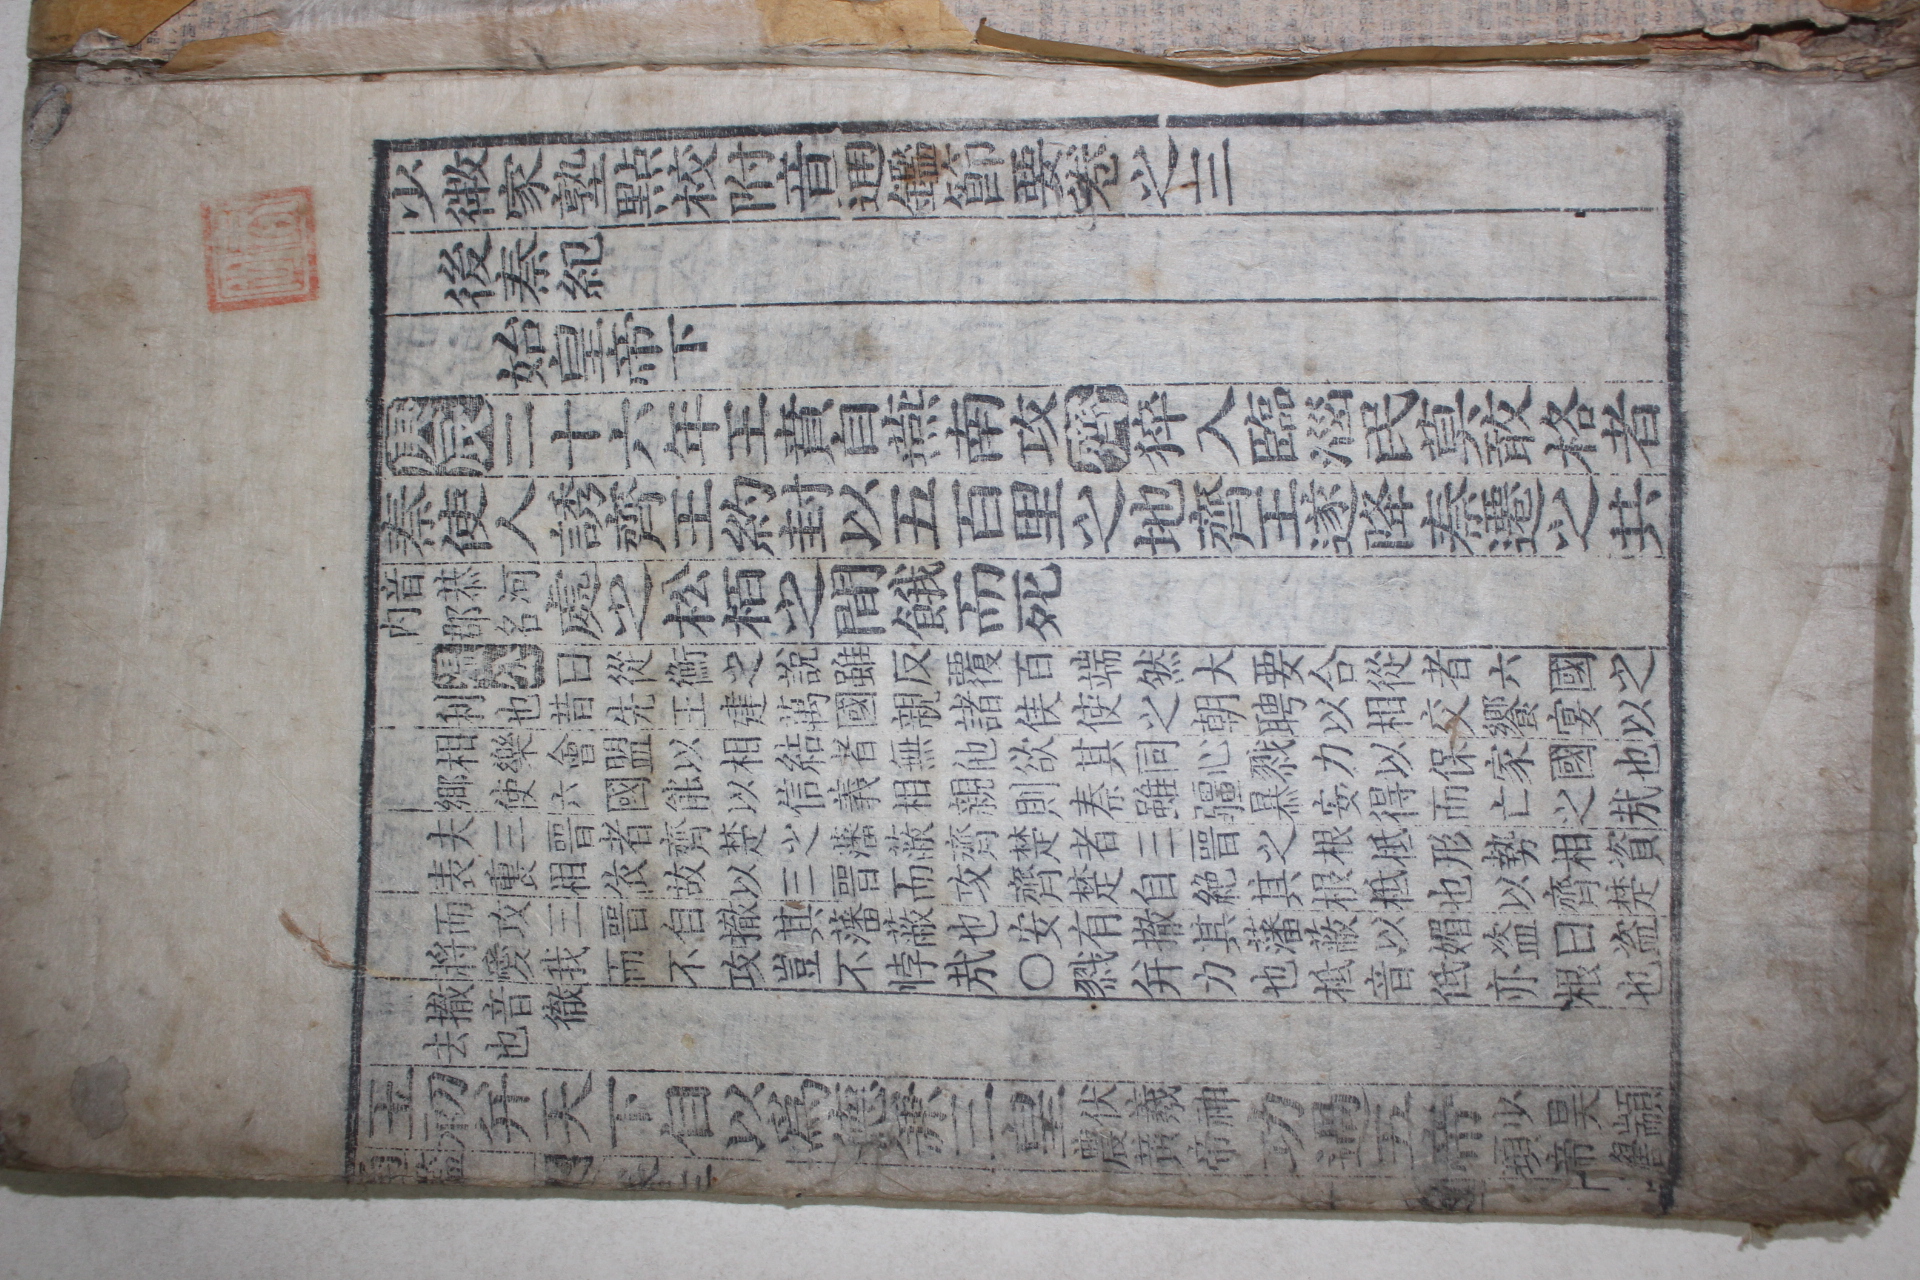 少微家塾點校附音通鑑節要卷之三
後秦紀
始皇帝下
庚辰二十六年王賁自燕南攻齊猝入臨淄民莫敢格者
秦使人誘齊王約封以五百里之地齊王遂降秦遷之共
音恭河
內郡名
處之松栢之間餓而死
溫公曰從衡之說雖反覆百端然大要合從者六國之
利也昔先王建萬國親諸侯使之朝聘以相交饗宴以
相樂會盟以相結者無他欲其同心戮力以保家國也
鄉使六國能以信義相親則秦雖彊暴安得而亡之㢤
夫三晉者齊楚之藩蔽齊楚者三晉之根柢形勢相資
表裏相依故以三晉而攻齊楚自絶其根柢也以齊楚
而攻三晉自撤其藩蔽也安有撤其藩蔽以媚盗曰盗
將愛我而不攻豈不悖㢤○戮幷力也柢音低亦根也
撤音徹
去也
王初幷天下自以爲德兼三皇
伏羲神
農黃帝
功過五帝
少昊顓
頊帝嚳